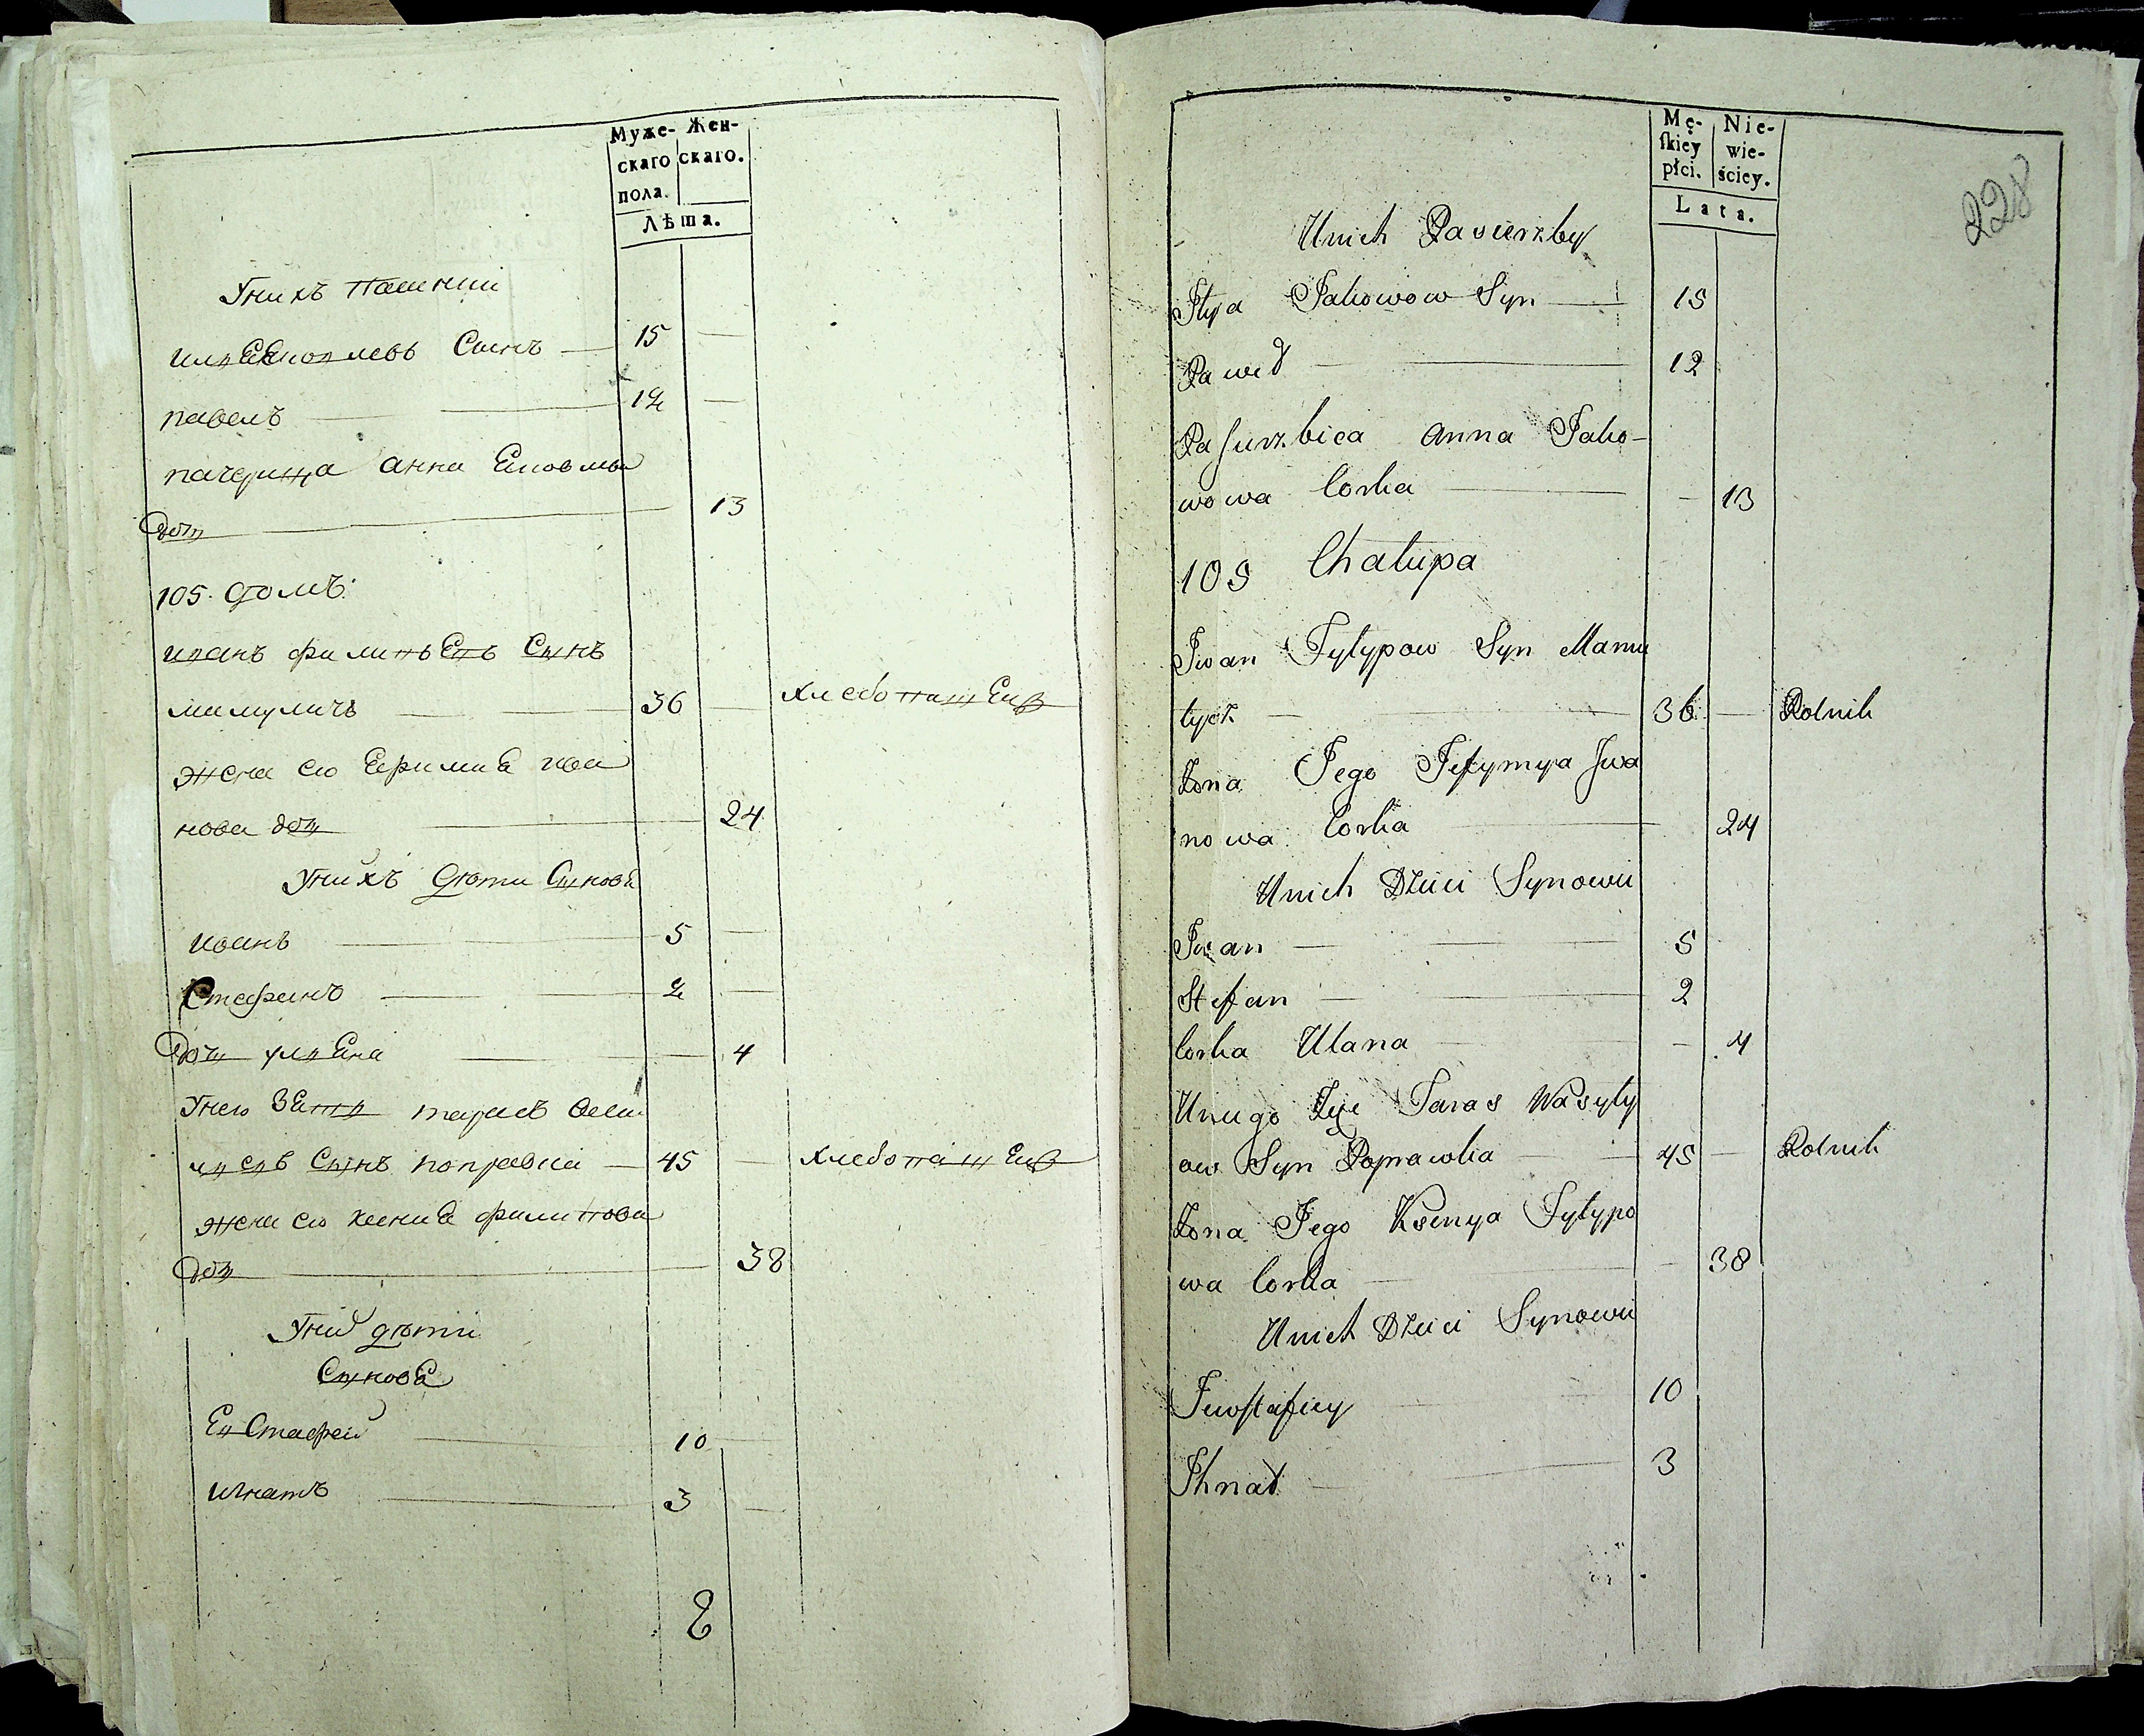 Муже- Жен-
скаго скаго.
пола.
Лѣта.
У нихъ пасинки
илья Ековлевъ Сынъ — 15 —
павелъ — 12 —
пачерица аннаЕковлева
Дочь — 13
105. домъ:
иванъ филипьевъ Сынъ
36 — хлебопашецъ
жена ево Ефимиа ива
нова дочь — 24
У нихъ дѣти Сынова
иванъ — 5 —
Стефанъ — 2 —
Дочь ульяна — 4
У нево Зять тарасъ васи
льевъ Сынъ поправка — 45 — хлебопашецъ
жена ево ксениа филипова
дочь — 38
У ній дѣти
Сынова
Евстафей — 10 —
игнатъ — 3 —
8
Mę- Nie-
skiey wie-
płci. ściey.
Lata.
228
Unich Pasierzby
Ilya Jakowow Syn — 15
Paweł — 12
Pasierzbica Anna Jako-
wowa Corka — 13
105 Chałupa
Iwan Fylypow Syn Mamu
36 — Rolnik
Żona Jego Jefymya Iwa
nowa Corka — 24
Unich Dzieci Synowie
Iwan — 5
Stefan — 2
Corka Ulana — 4
Unego Zięć Taras Wasyly
ow Syn Poprawka — 45 — Rolnik
Żona Jego Ksenya Fylypo
wa Corka — 38
Unich Dzieci Synowie
Jewstafiey 10
Ihnat — 3